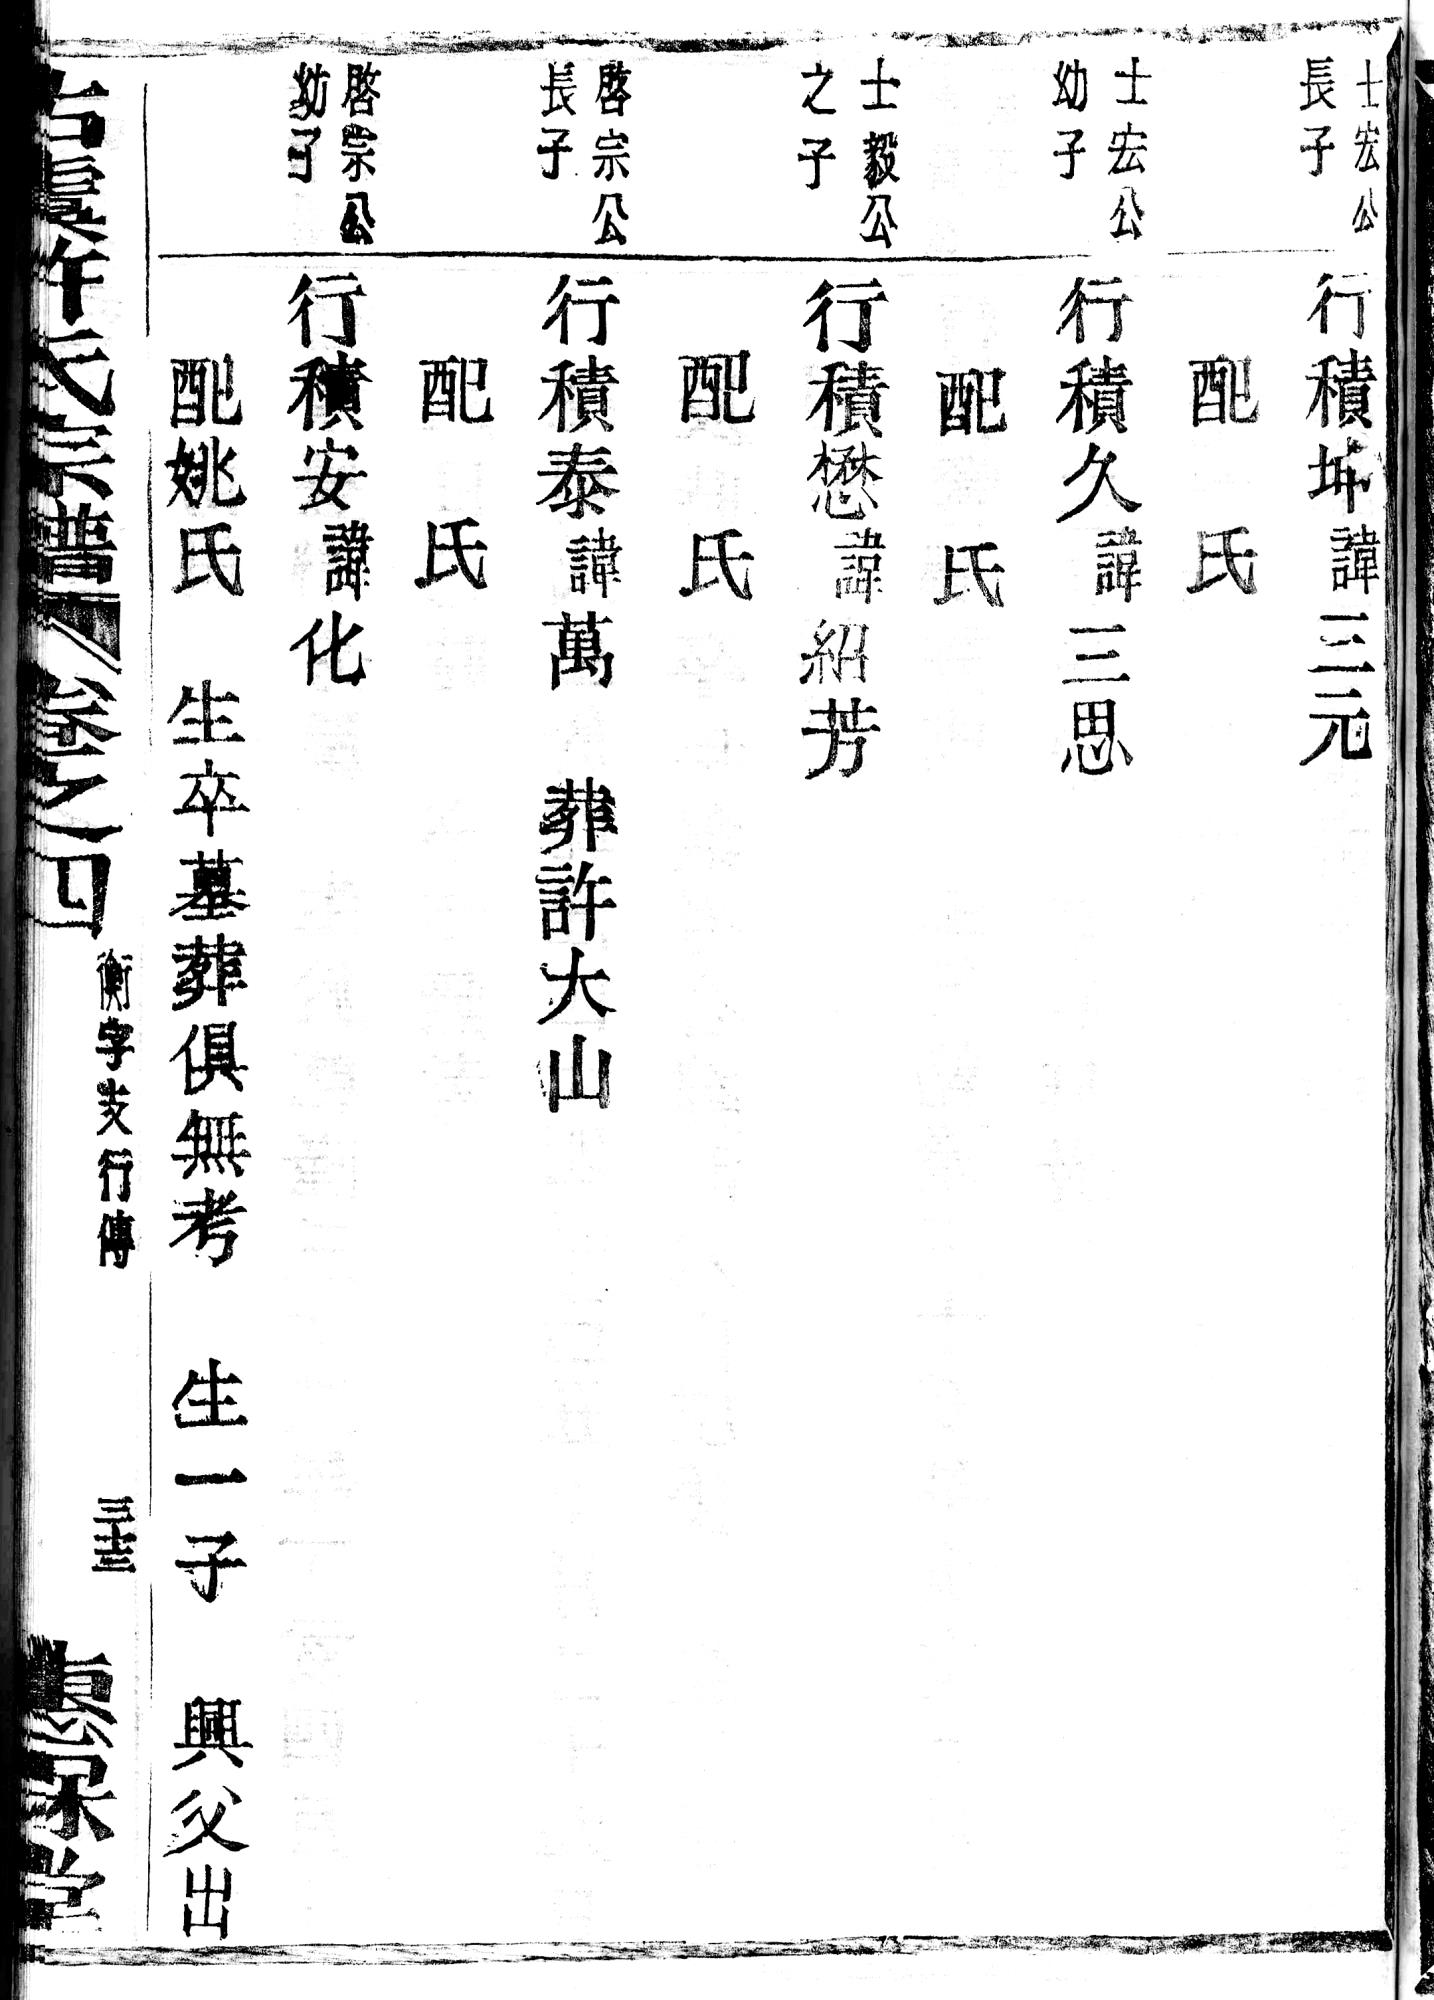 士宏公
長子
行積坤諱三元
配　氏
士宏公
幼子
行積久諱三思
配　氏
士毅公
之子
行積懋諱紹芳
配　氏
啓宗公
長子
行積泰諱萬　葬許大山
配　氏
啓宗公
幼子
行積安諱化
配姚氏　生卒墓葬俱無考　生一子　興父出
古虞許氏宗譜　卷之四　衡字支行傳　三十三
堂